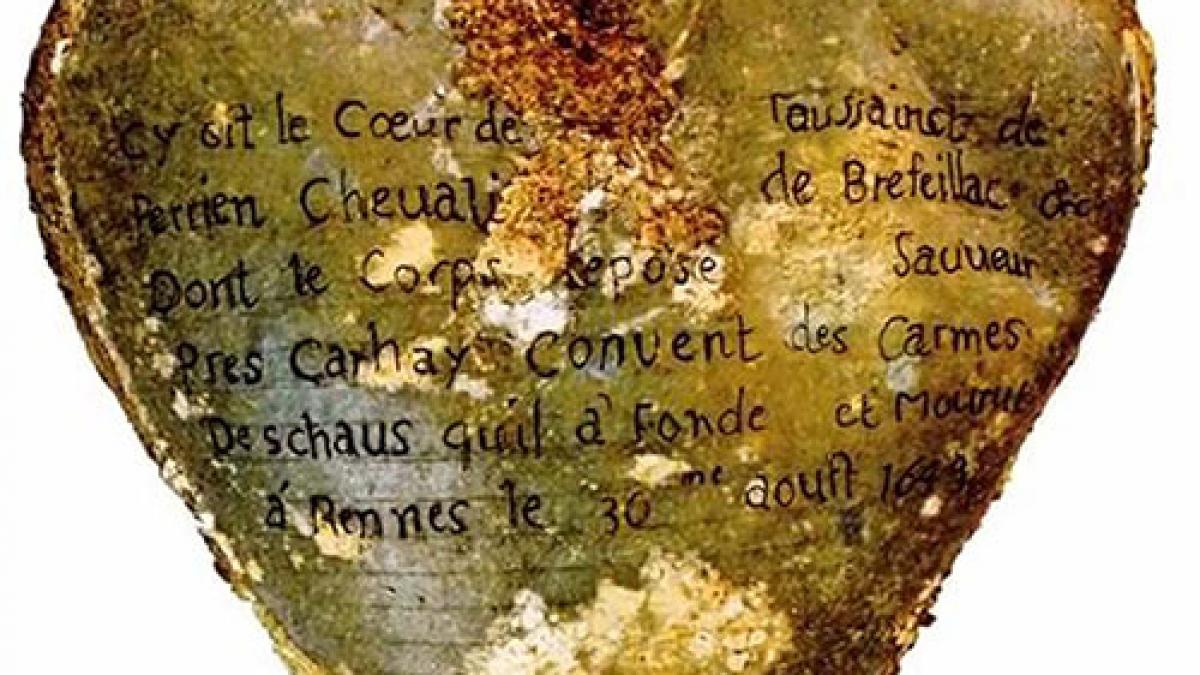 Cy Git le Cœur de Taussainct de
Perrien Cheuali de Brefeillac
Dont le Corps Repose Sauueur
Pres Carhay Conuent des Carmes
Deschaus quil à Fonde et Mourut
á Rennes le 30me aoust 1649